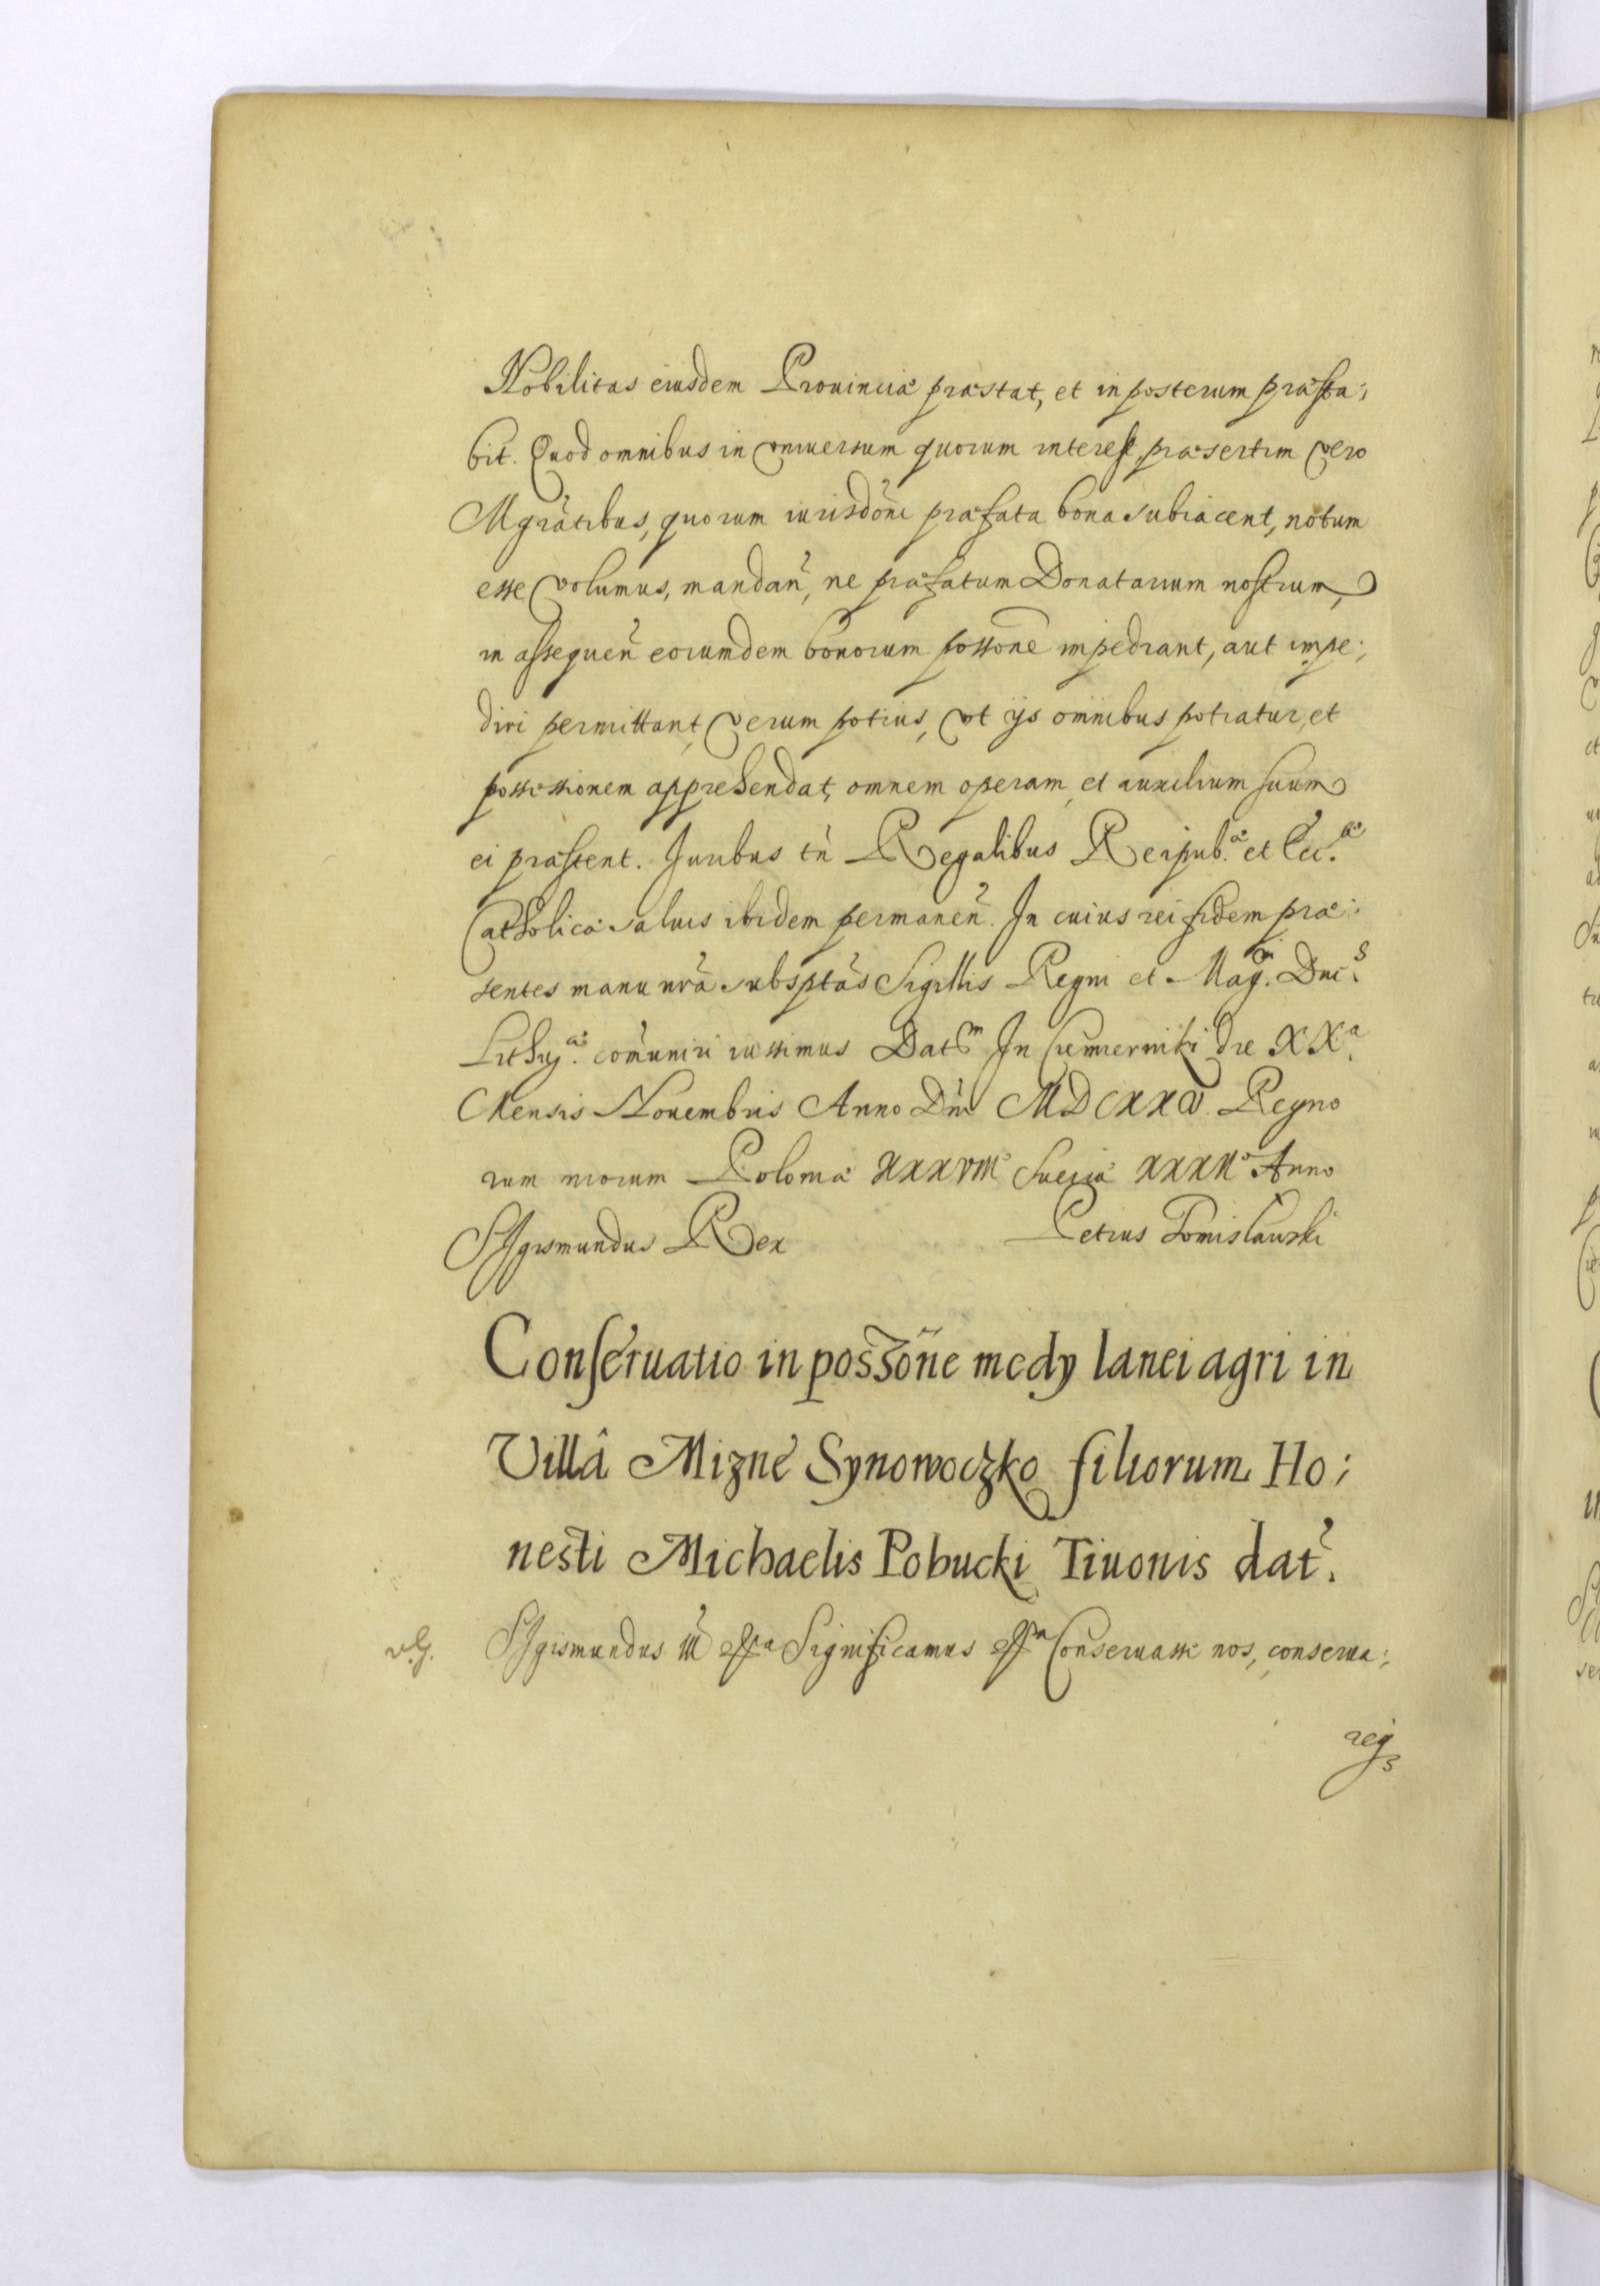 Nobilitas eiusdem Prouinciæ præstat, et in posterum præsta:
bit. Quod omnibus in vniuersum quorum interest, præsertim vero
Mgratibus, quorum iurisdoni præfata bona subiacent, notum
esse volumus, mandan̄, ne præfatum Donatarium nostrum,
in assequen̄ eorumdem bonorum possone impediant, aut impe:
diri permittant, verum potius, vt ijs omnibus potiatur, et
possessionem apprehendat, omnem operam et auxilium suum
ei præstent. Juribus tn̄ Regalibus Reipub.æ et Ecc.æ
Catholicæ saluis ibidem permanen̄. In cuius rei fidem præ:
sentes manu nrā subsptās Sigillis Regni et Mag. Duc.s
Lithuæ. com̄uniri iussimus Dat In die XXa.
Mensis Nouembris Anno Dni MDCXXV. Regno
rum nrorum Poloniæ XXXVIII Sueciæ XXXII° Anno
Sigismundus Rex Petrus Tomisławski
Conseruatio in posšone medy lanei agri in
Villâ Mizne Synowoczko filiorum Ho:
nesti Michaelis Pobucki Tiuonis dat.
Sigismundus III etca Significamus etca Conseruasse nos, conserua: